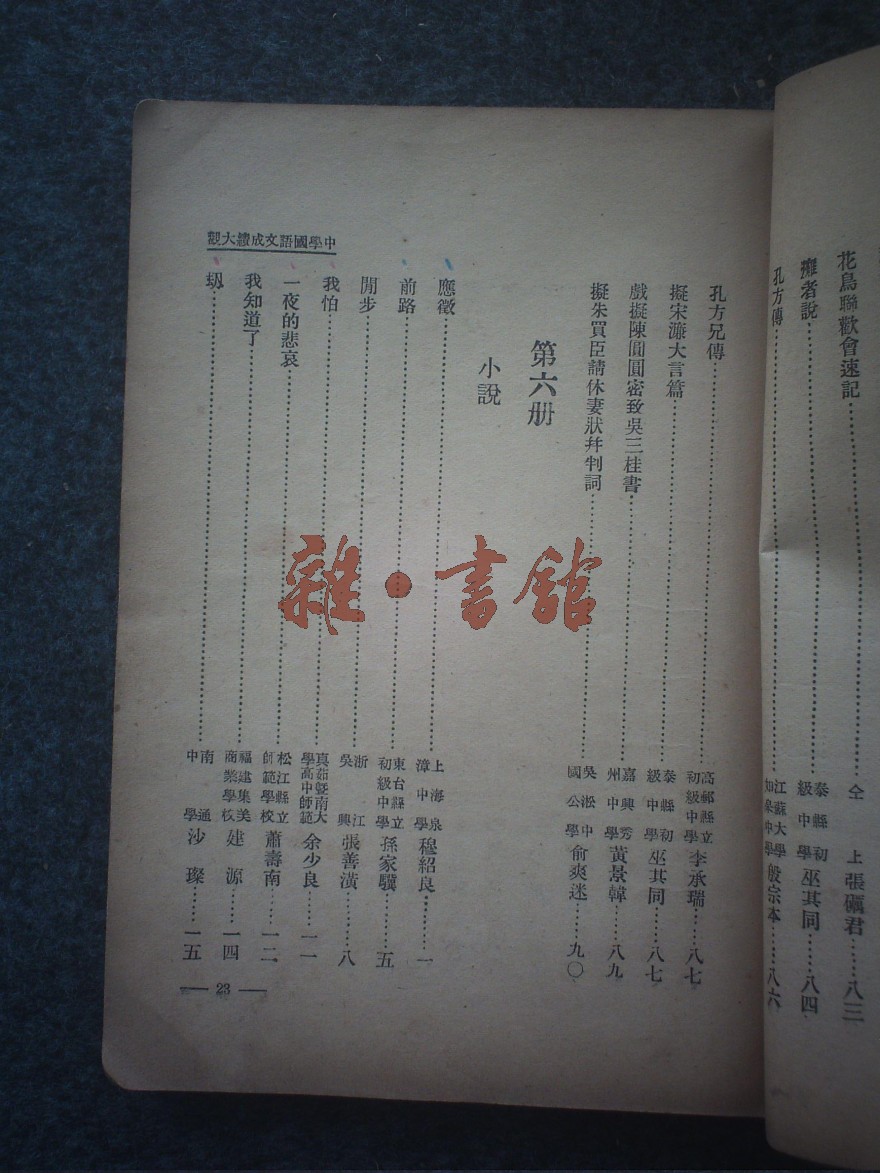 花鳥聯歡會速記……仝上 張礪君……八三
者說……泰縣初級中學 巫其同……八四
孔方傳……江蘇大學如皋中學 殷宗本……八六
孔方兄傳……高郵縣立初級中學 李承瑞……八七
擬宋濂大言篇……泰縣初級中學 巫其同……八七
戲擬陳圓圓密致吳三桂書……嘉興秀州中學 黃景韓……八九
擬朱買臣請休妻狀幷判詞……吳淞中國公學 俞爽迷……九〇
第六册
小說
應徵……上海泉漳中學 穆紹良……一
前路……東台縣立初級中學 孫家驥……五
閒步……浙江吳興 張善潢……八
我怕……真茹暨南大學高中師範 余少良……一一
一夜的悲哀……松江縣立師範學校 蕭壽南……一二
我知道了……福建集美商業學校 建源……一四
……南通中學 沙璨……一五
中學國語文成績大觀
— 23 —
雜·書館